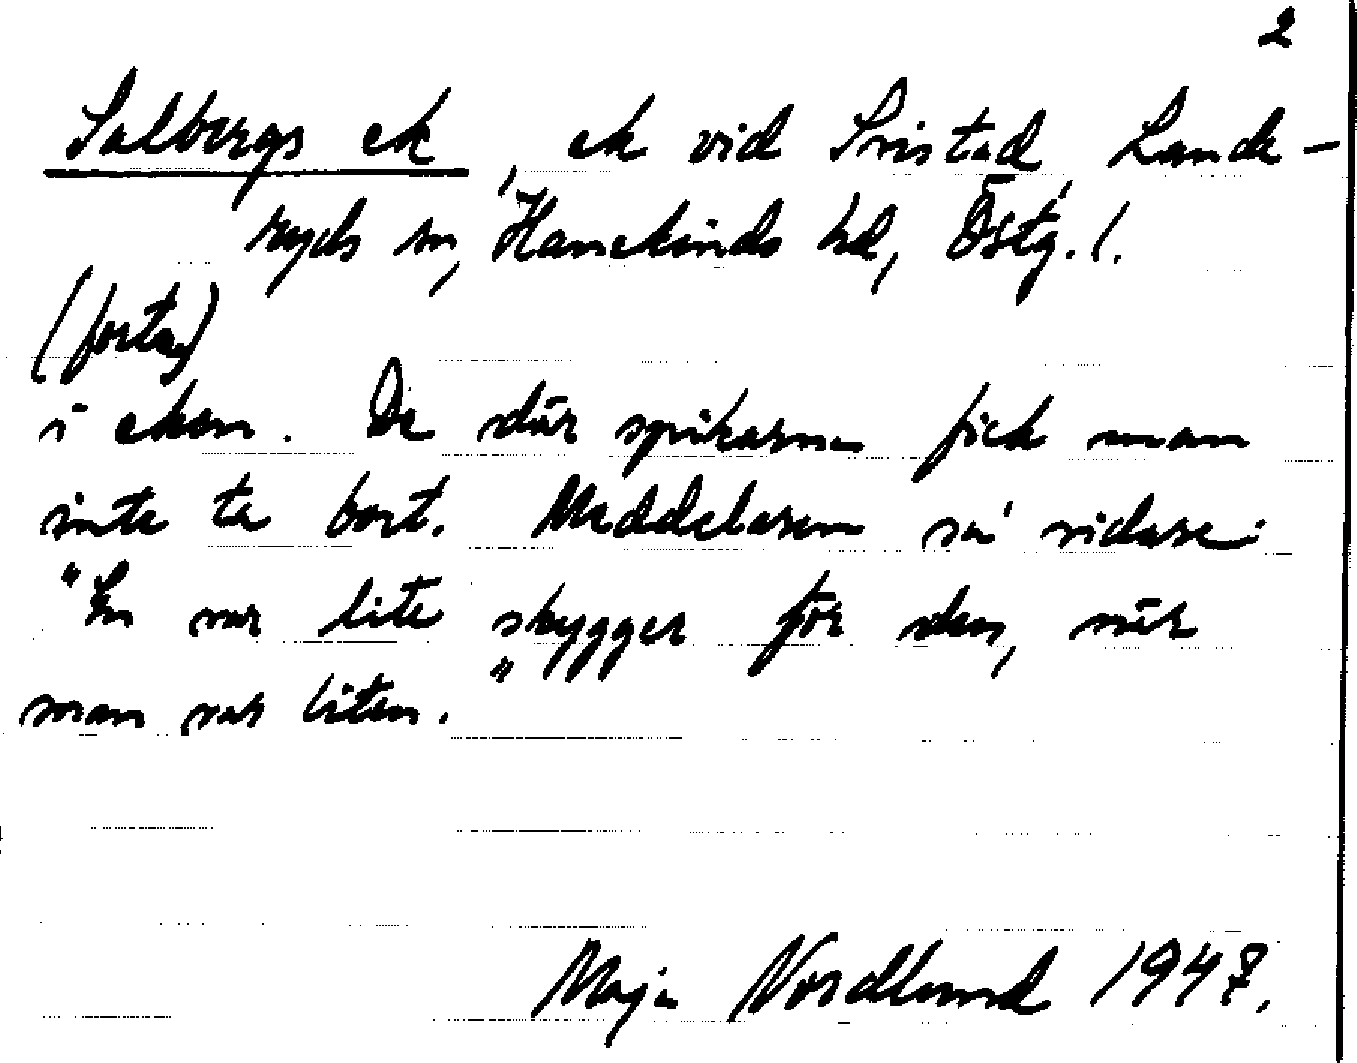 2
Salbergs ek, ek vid Sristad, Lande-
ryds sn, Hanekinds hd, Östg. l.
(forts)
i eken. De där spikarna fick man
inte ta bort. Meddelaren sa' vidare:
"En var lite skygger för den, när
man var liten."
Maja Nordlund 1947.